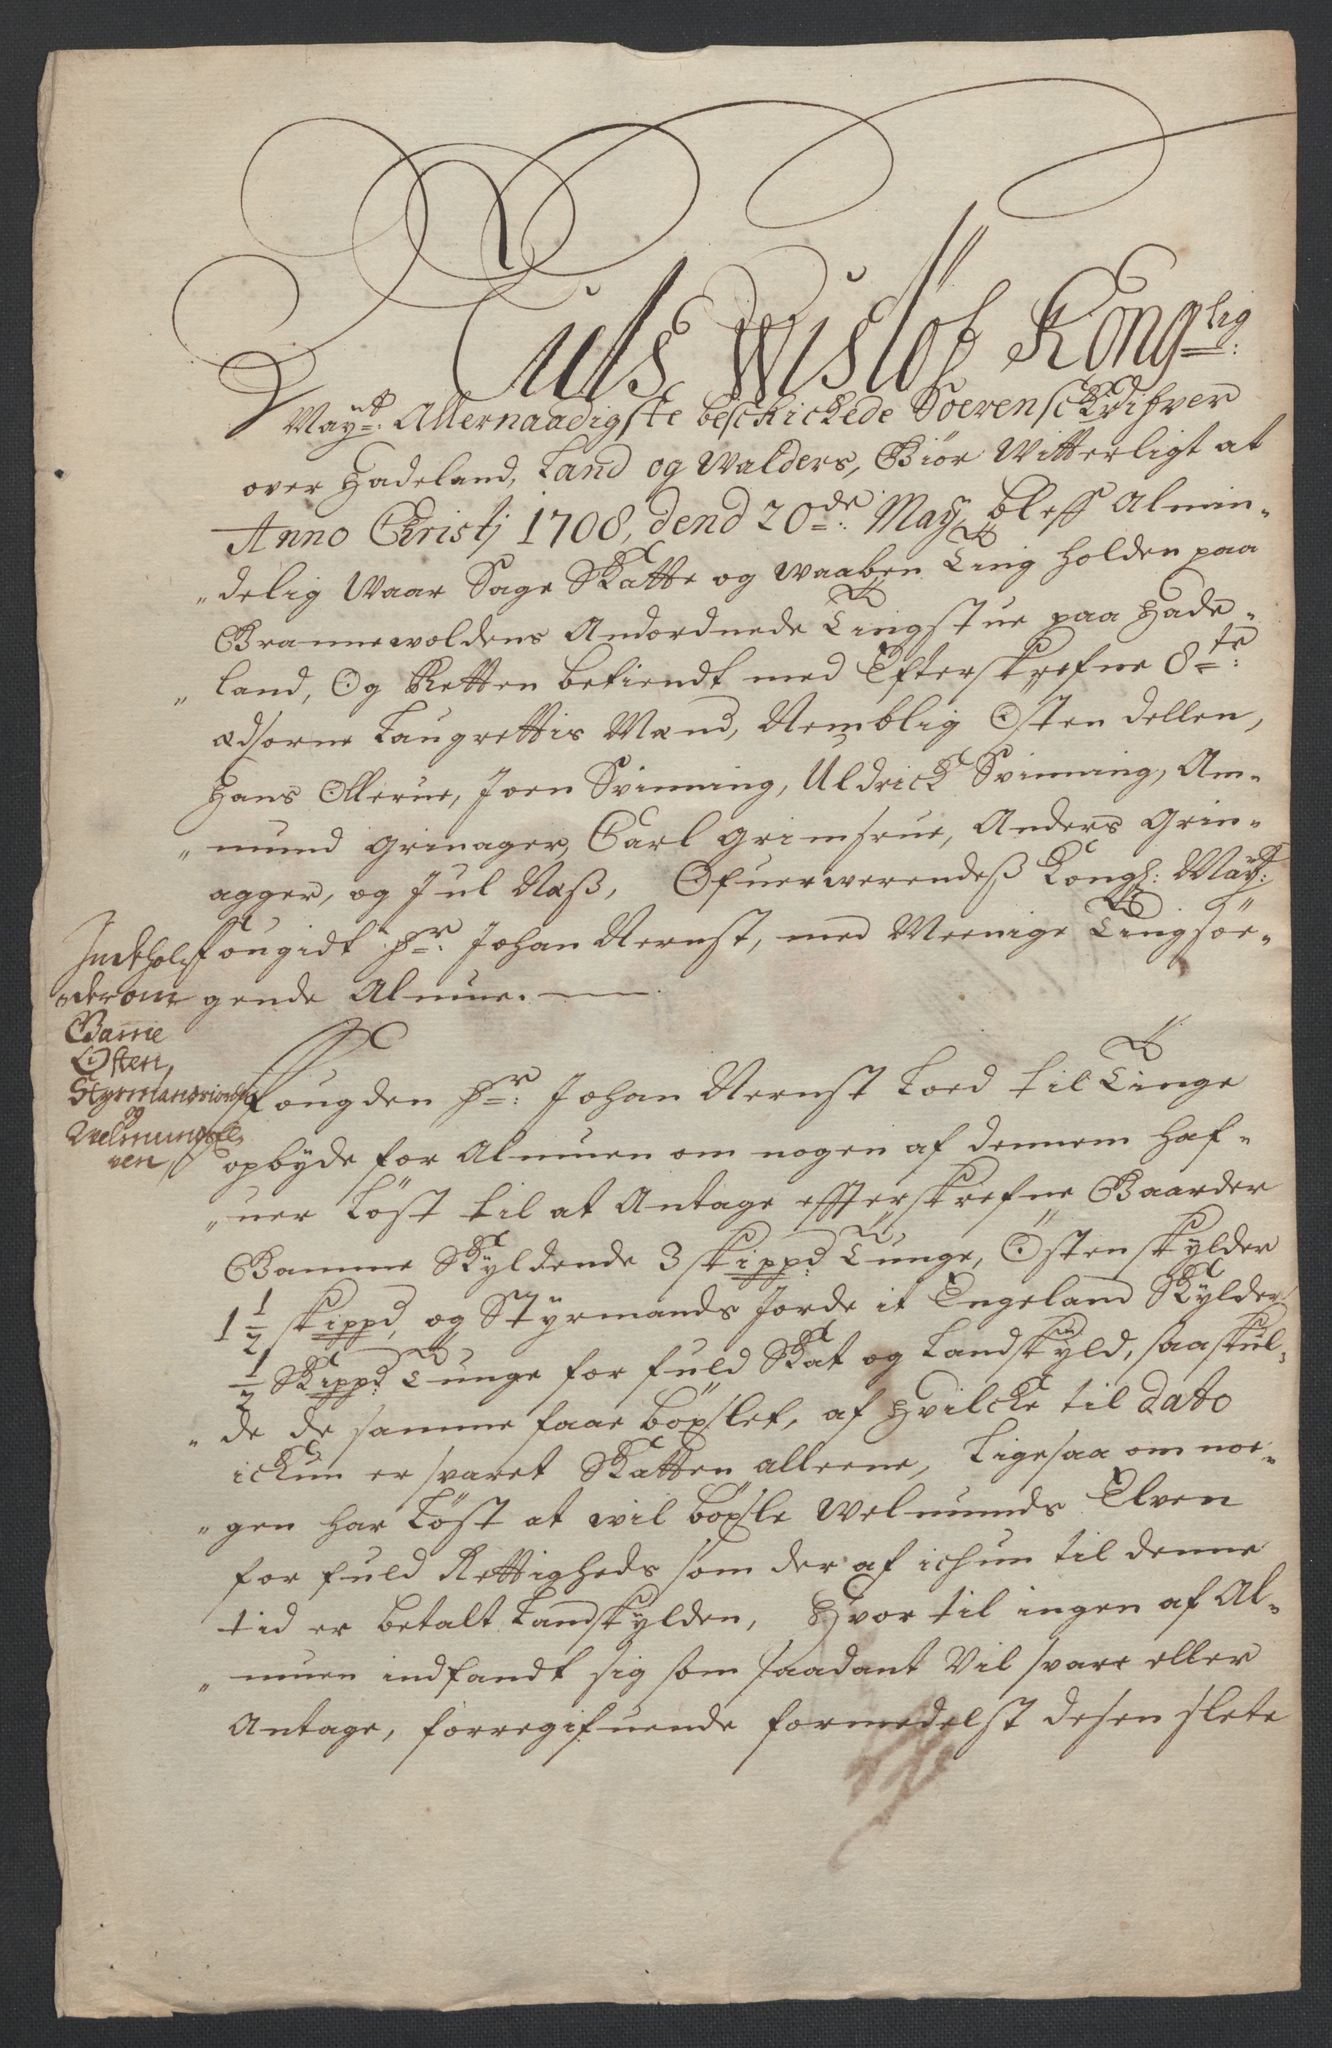 Niels Wisløf Kong.lig
May.tt: Allernaadigste beskickede Soerenschrifver
over Hadeland, Land og Walders, Giör Witterligt at
Anno Christj 1708, dend 20de: Maÿ, bleff Almin-
„delig Waar Sage Skatte og Waaben Ting holden paa
Grannewoldens Andordnede Tingstue paa Hade-
„land, Og Retten betiendt med Efterskrefne 8te:
ædsorne Laugrettis Mænd, Nemblig Østen Dellen,
Hans Ollerue, Joen Svinning, Uldrick Svinning, Am-
„mund Grinager, Carl Grimsrue, Anders Grin-
agger, og Jul Næß, Ofuerwerendeß Kongl: Maÿtt:
Fougidt Hr: Johan Nernst, med Meenige Tingsøe-
gende Almue.
Indhol-
der om
Gamme
Østen,
Styrmandsiorde
og
Velmunds El-
ven
Fougden Hr: Johan Nernst Loed til Tinge
opbÿde for Almuen om nogen af dennem haf-
„uer Løst til at Antage effterskrefne Gaarder
Gamme Skÿldende 3 skippd Tunge, Østen skÿlder
1 1/2 skippd, og Stÿrmands Jorde it Engeland Skÿlder
1/2 Skippd: Tunge for fuld Skat og Landskÿld, saa skul-
„de de samme faae böxslet, af Hvilcke til dato
ickun er svaret Skatten alleene, Ligesaa om noe-
„gen har Løst at wil böxsle Welmunds Elven
for fuld Rettigheds som der af ichun til denne
tid er betalt Landskÿlden, Hvor til ingen af Al-
„muen indfandt sig som saadant Vil svare eller
Antage, forregifuende formedelst desen slete